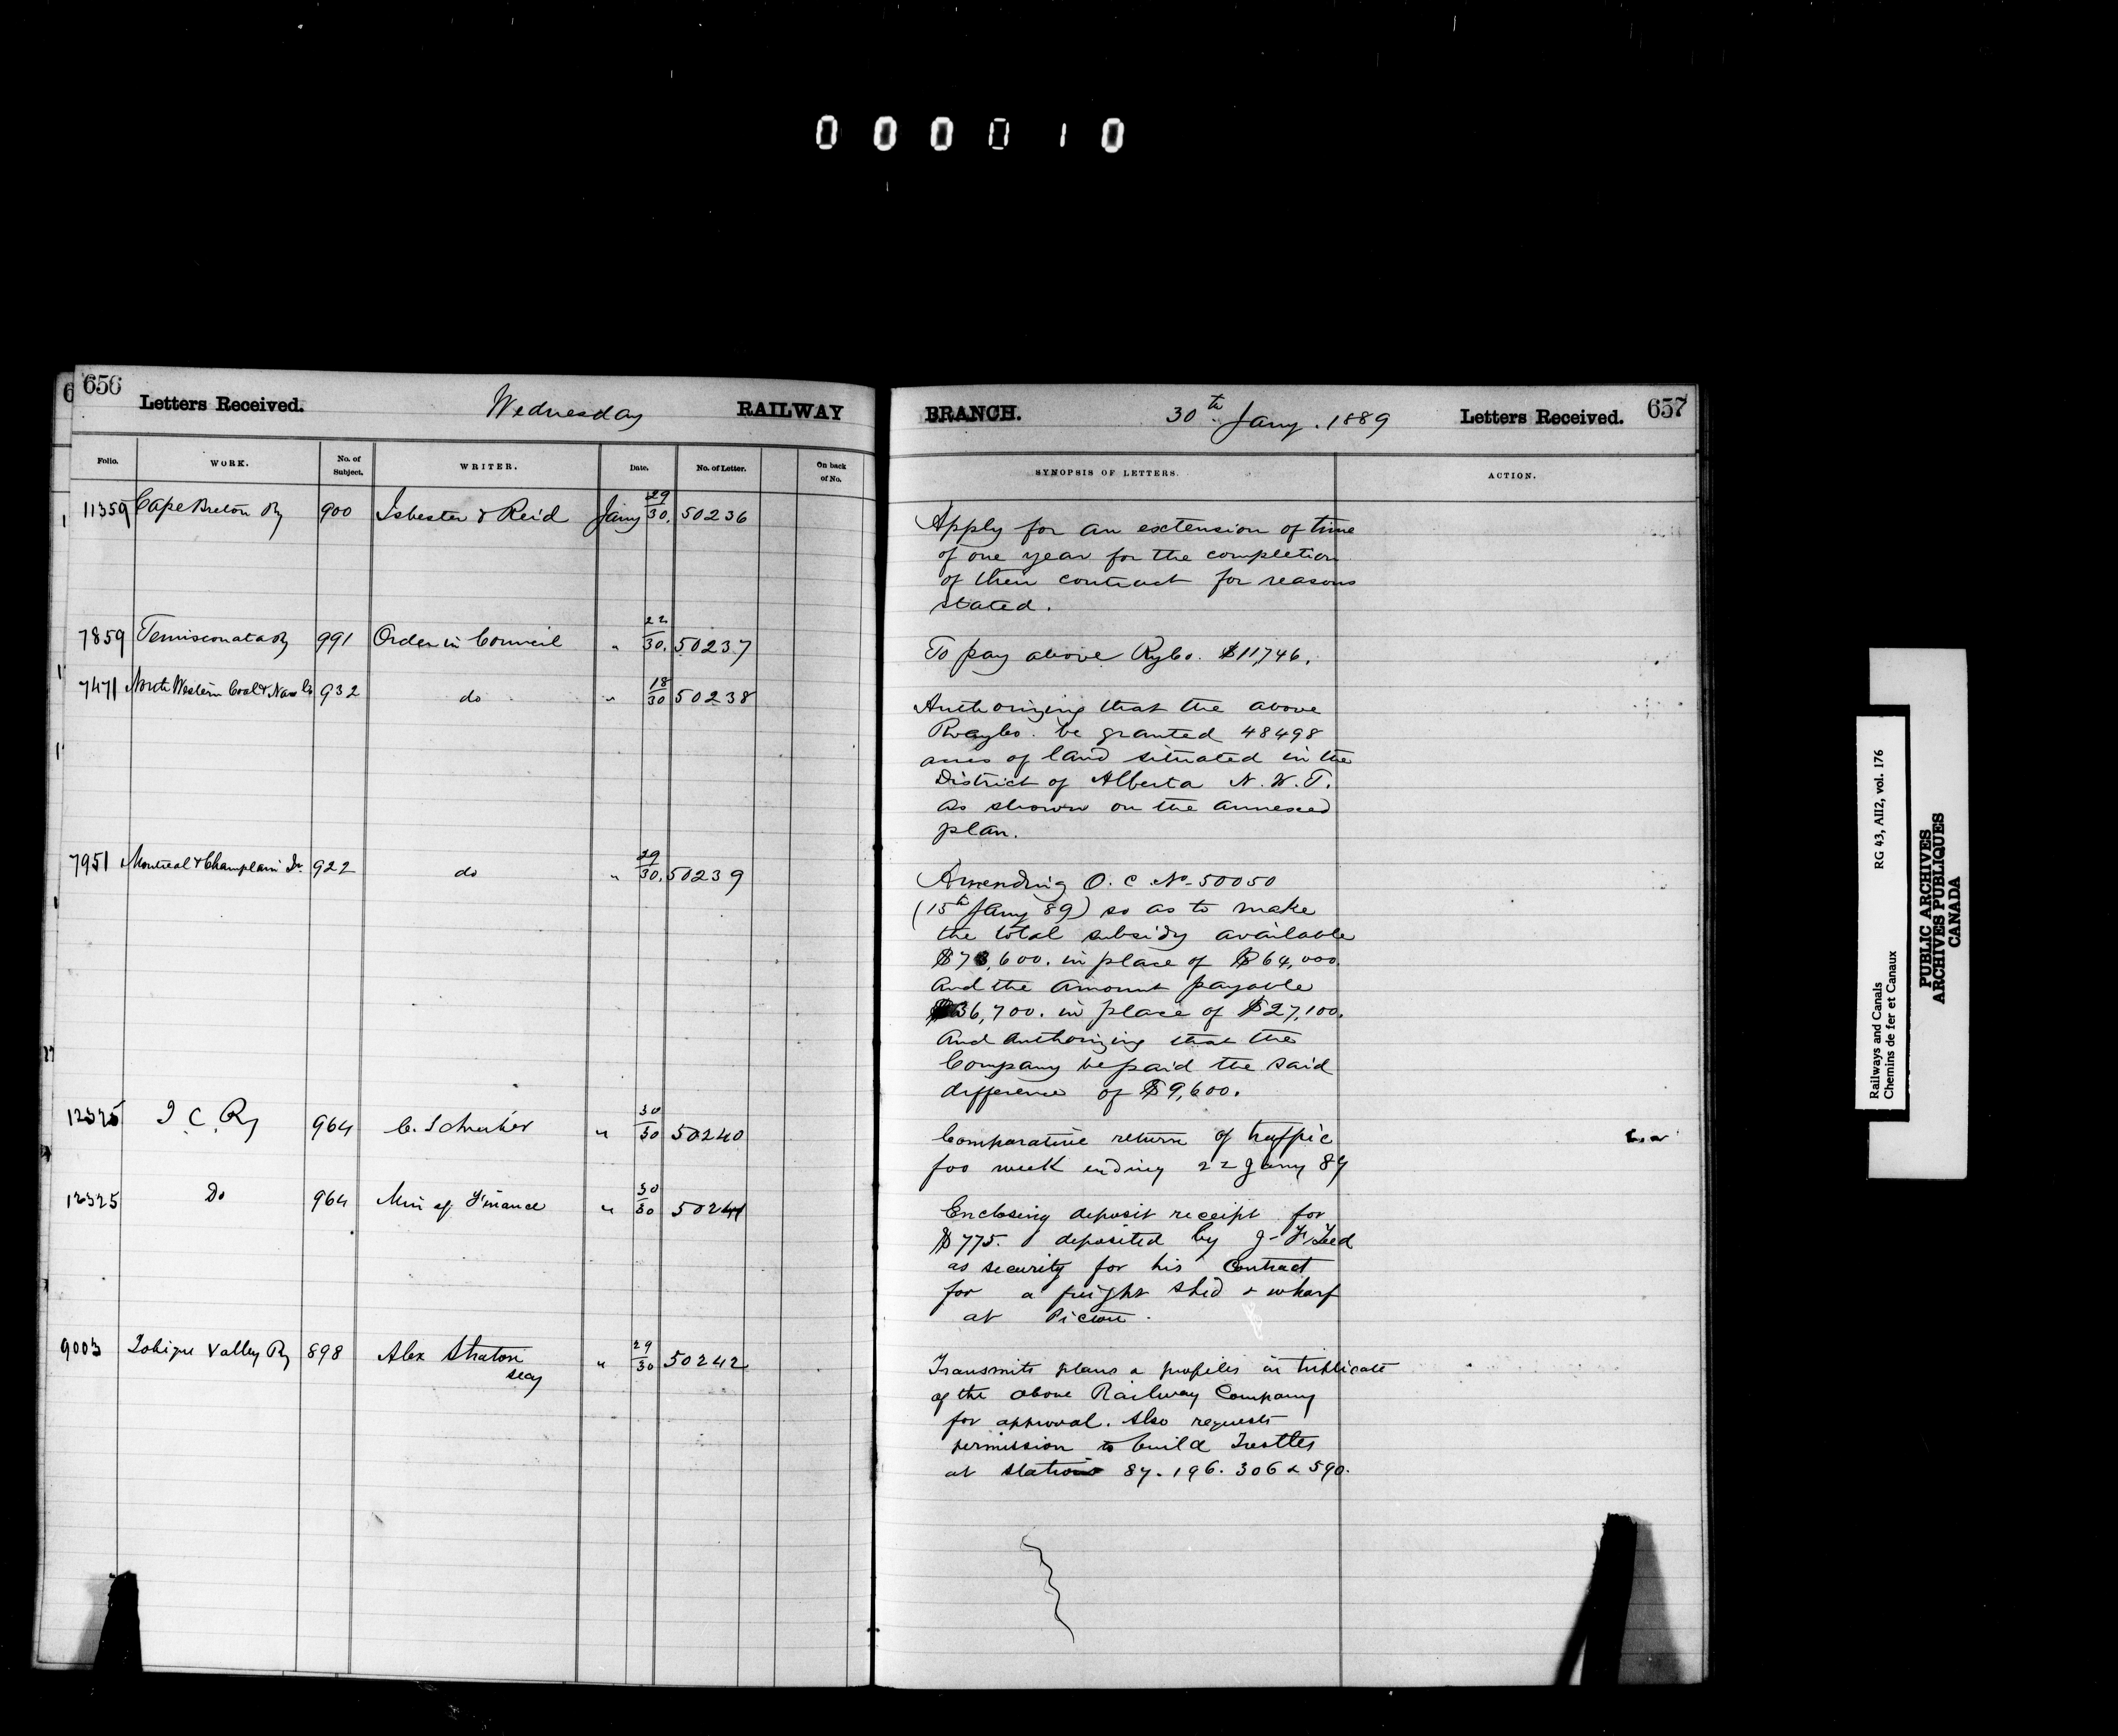 000010
656
Letters Received.
Wednesday
RAILWAY
Folio.
WORK.
No. of Subject.
WRITER.
Date.
No. of Letter.
On back of No.
11359 Cape Breton Ry 900 Isbester & Reid Jany 29/30. 50236
7859 Temiscouata Ry 991 Order in Council " 22/30. 50237
7471 North Western Coal & Nav Co 932 do " 18/30 50238
7951 Montreal & Champlain Jn. 922 do " 29/30. 50239
12325 I. C. Ry 964 C. Schreiber " 30/30 50240
12325 Do 964 Min of Finance " 30/30 50241
9003 Tobique Valley Ry 898 Alex Straton " 29/30 50242
secy
BRANCH.
30th Jany. 1889
Letters Received.
657
SYNOPSIS OF LETTERS.
ACTION.
Apply for an extension of time
of one year for the completion
of their contract for reasons
stated.
To pay above Ry Co. $11,746.
Authorizing that the above
Rway Co. be granted 48498
acres of land situated in the
District of Alberta N. W. T.
as shown on the annexed
plan.
Amending O. C. No. 50050
(15th Jany 89) so as to make
the total subsidy available
$73,600. in place of $64,000.
And the amount payable
$36,700. in place of $27,100.
And authorizing that the
Company be paid the said
difference of $9,600.
Comparative return of traffic
for week ending 22 Jany 89
Enclosing deposit receipt for
$775. deposited by J. F. Teed
as security for his Contract
for a freight shed & wharf
at Pictou.
Transmits plans & profiles in triplicate
of the above Railway Company
for approval. Also requests
permission to build Trestles
at stations 87. 196. 306 & 590.
Railways and Canals
Chemins de fer et Canaux
RG 43, AII2, vol. 176
PUBLIC ARCHIVES
ARCHIVES PUBLIQUES
CANADA